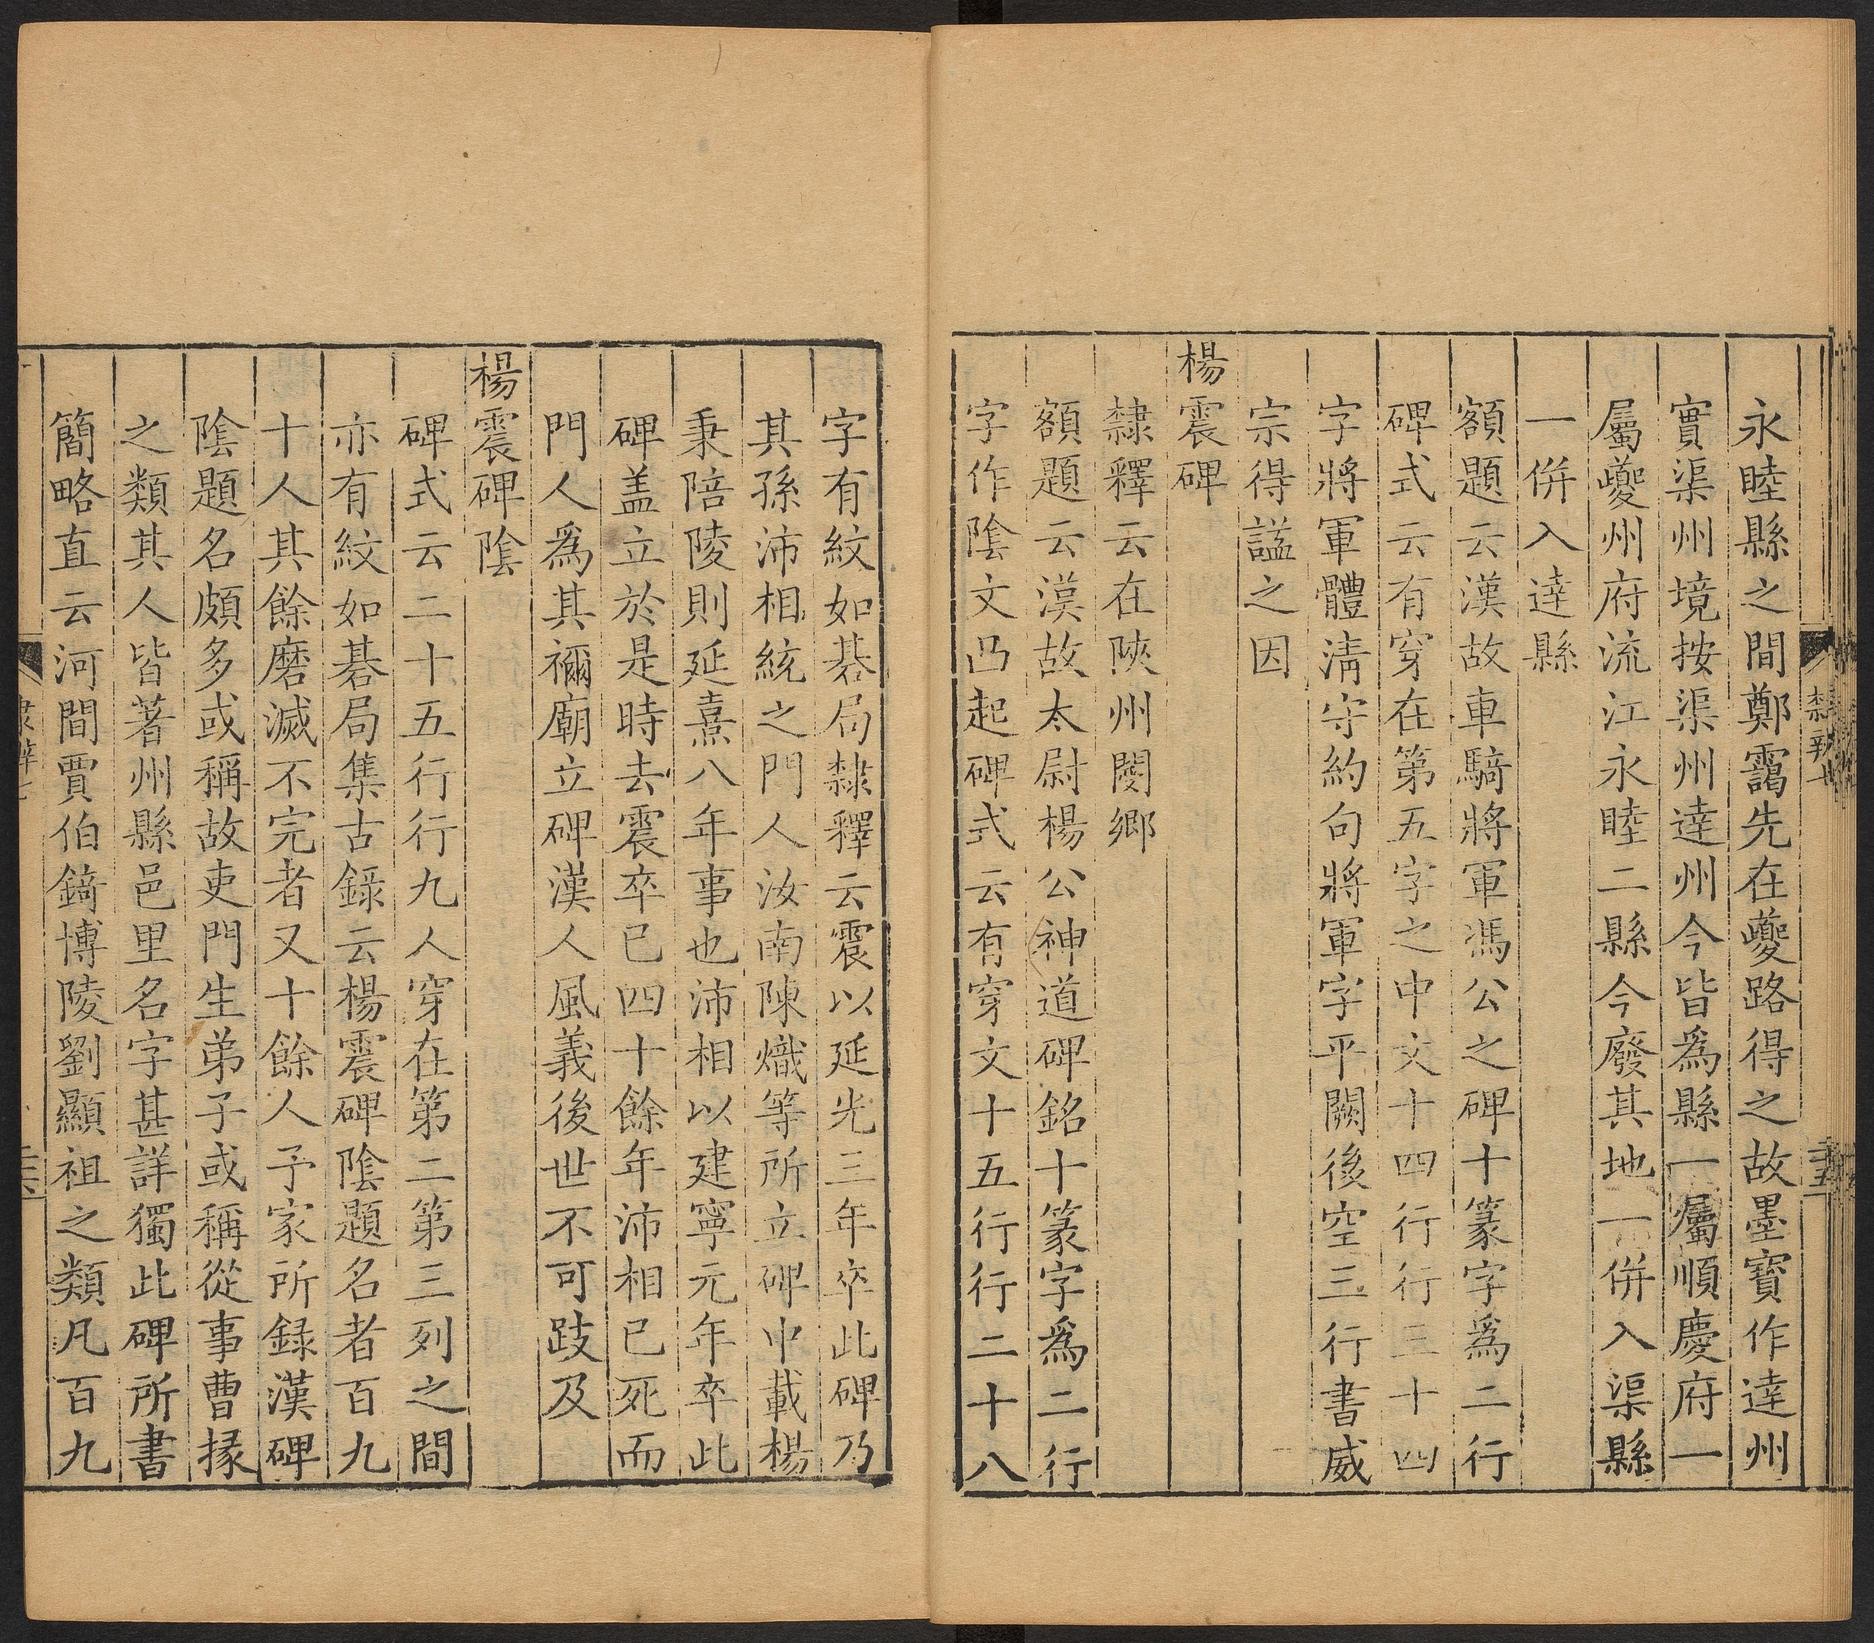 隸辨七
三五
永睦縣之間鄭靄先在夔路得之故墨寶作達州
實渠州境按渠州達州今皆爲縣一屬順慶府一
屬夔州府流江永睦二縣今廢其地一併入渠縣
一併入達縣
額題云漢故車騎將軍馮公之碑十篆字爲二行
碑式云有穿在第五字之中文十四行行三十四
字將軍體淸守約句將軍字平闕後空三行書威
宗得諡之因
楊震碑
隸釋云在陝州閿鄉
額題云漢故太尉楊公神道碑銘十篆字爲二行
字作陰文凸起碑式云有穿文十五行行二十八
字有紋如碁局隸釋云震以延光三年卒此碑乃
其孫沛相統之門人汝南陳熾等所立碑中載楊
秉陪陵則延熹八年事也沛相以建寧元年卒此
碑盖立於是時去震卒已四十餘年沛相已死而
門人爲其禰廟立碑漢人風義後世不可跂及
楊震碑陰
碑式云二十五行行九人穿在第二第三列之間
亦有紋如碁局集古錄云楊震碑陰題名者百九
十人其餘磨滅不完者又十餘人予家所録漢碑
陰題名頗多或稱故吏門生弟子或稱從事曹掾
之類其人皆著州縣邑里名字甚詳獨此碑所書
簡略直云河間賈伯錡博陵劉顯祖之類凡百九
隸辨七
三六